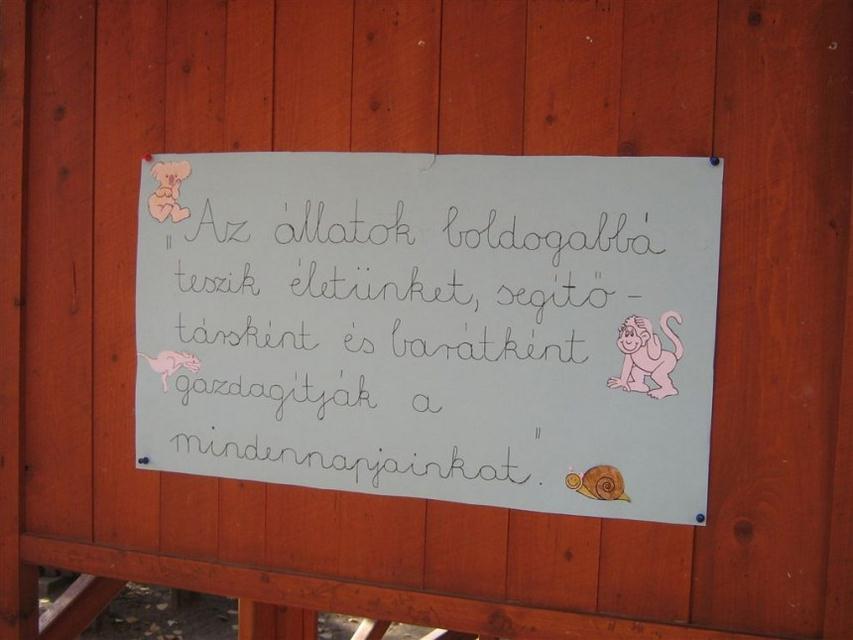 "Az állatok boldogabbá
teszik életünket, segítő-
társként és barátként
gazdagítják a
mindennapjainkat".